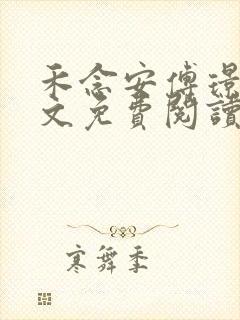 禾念安傅璟
文免費閱讀
寒舞季